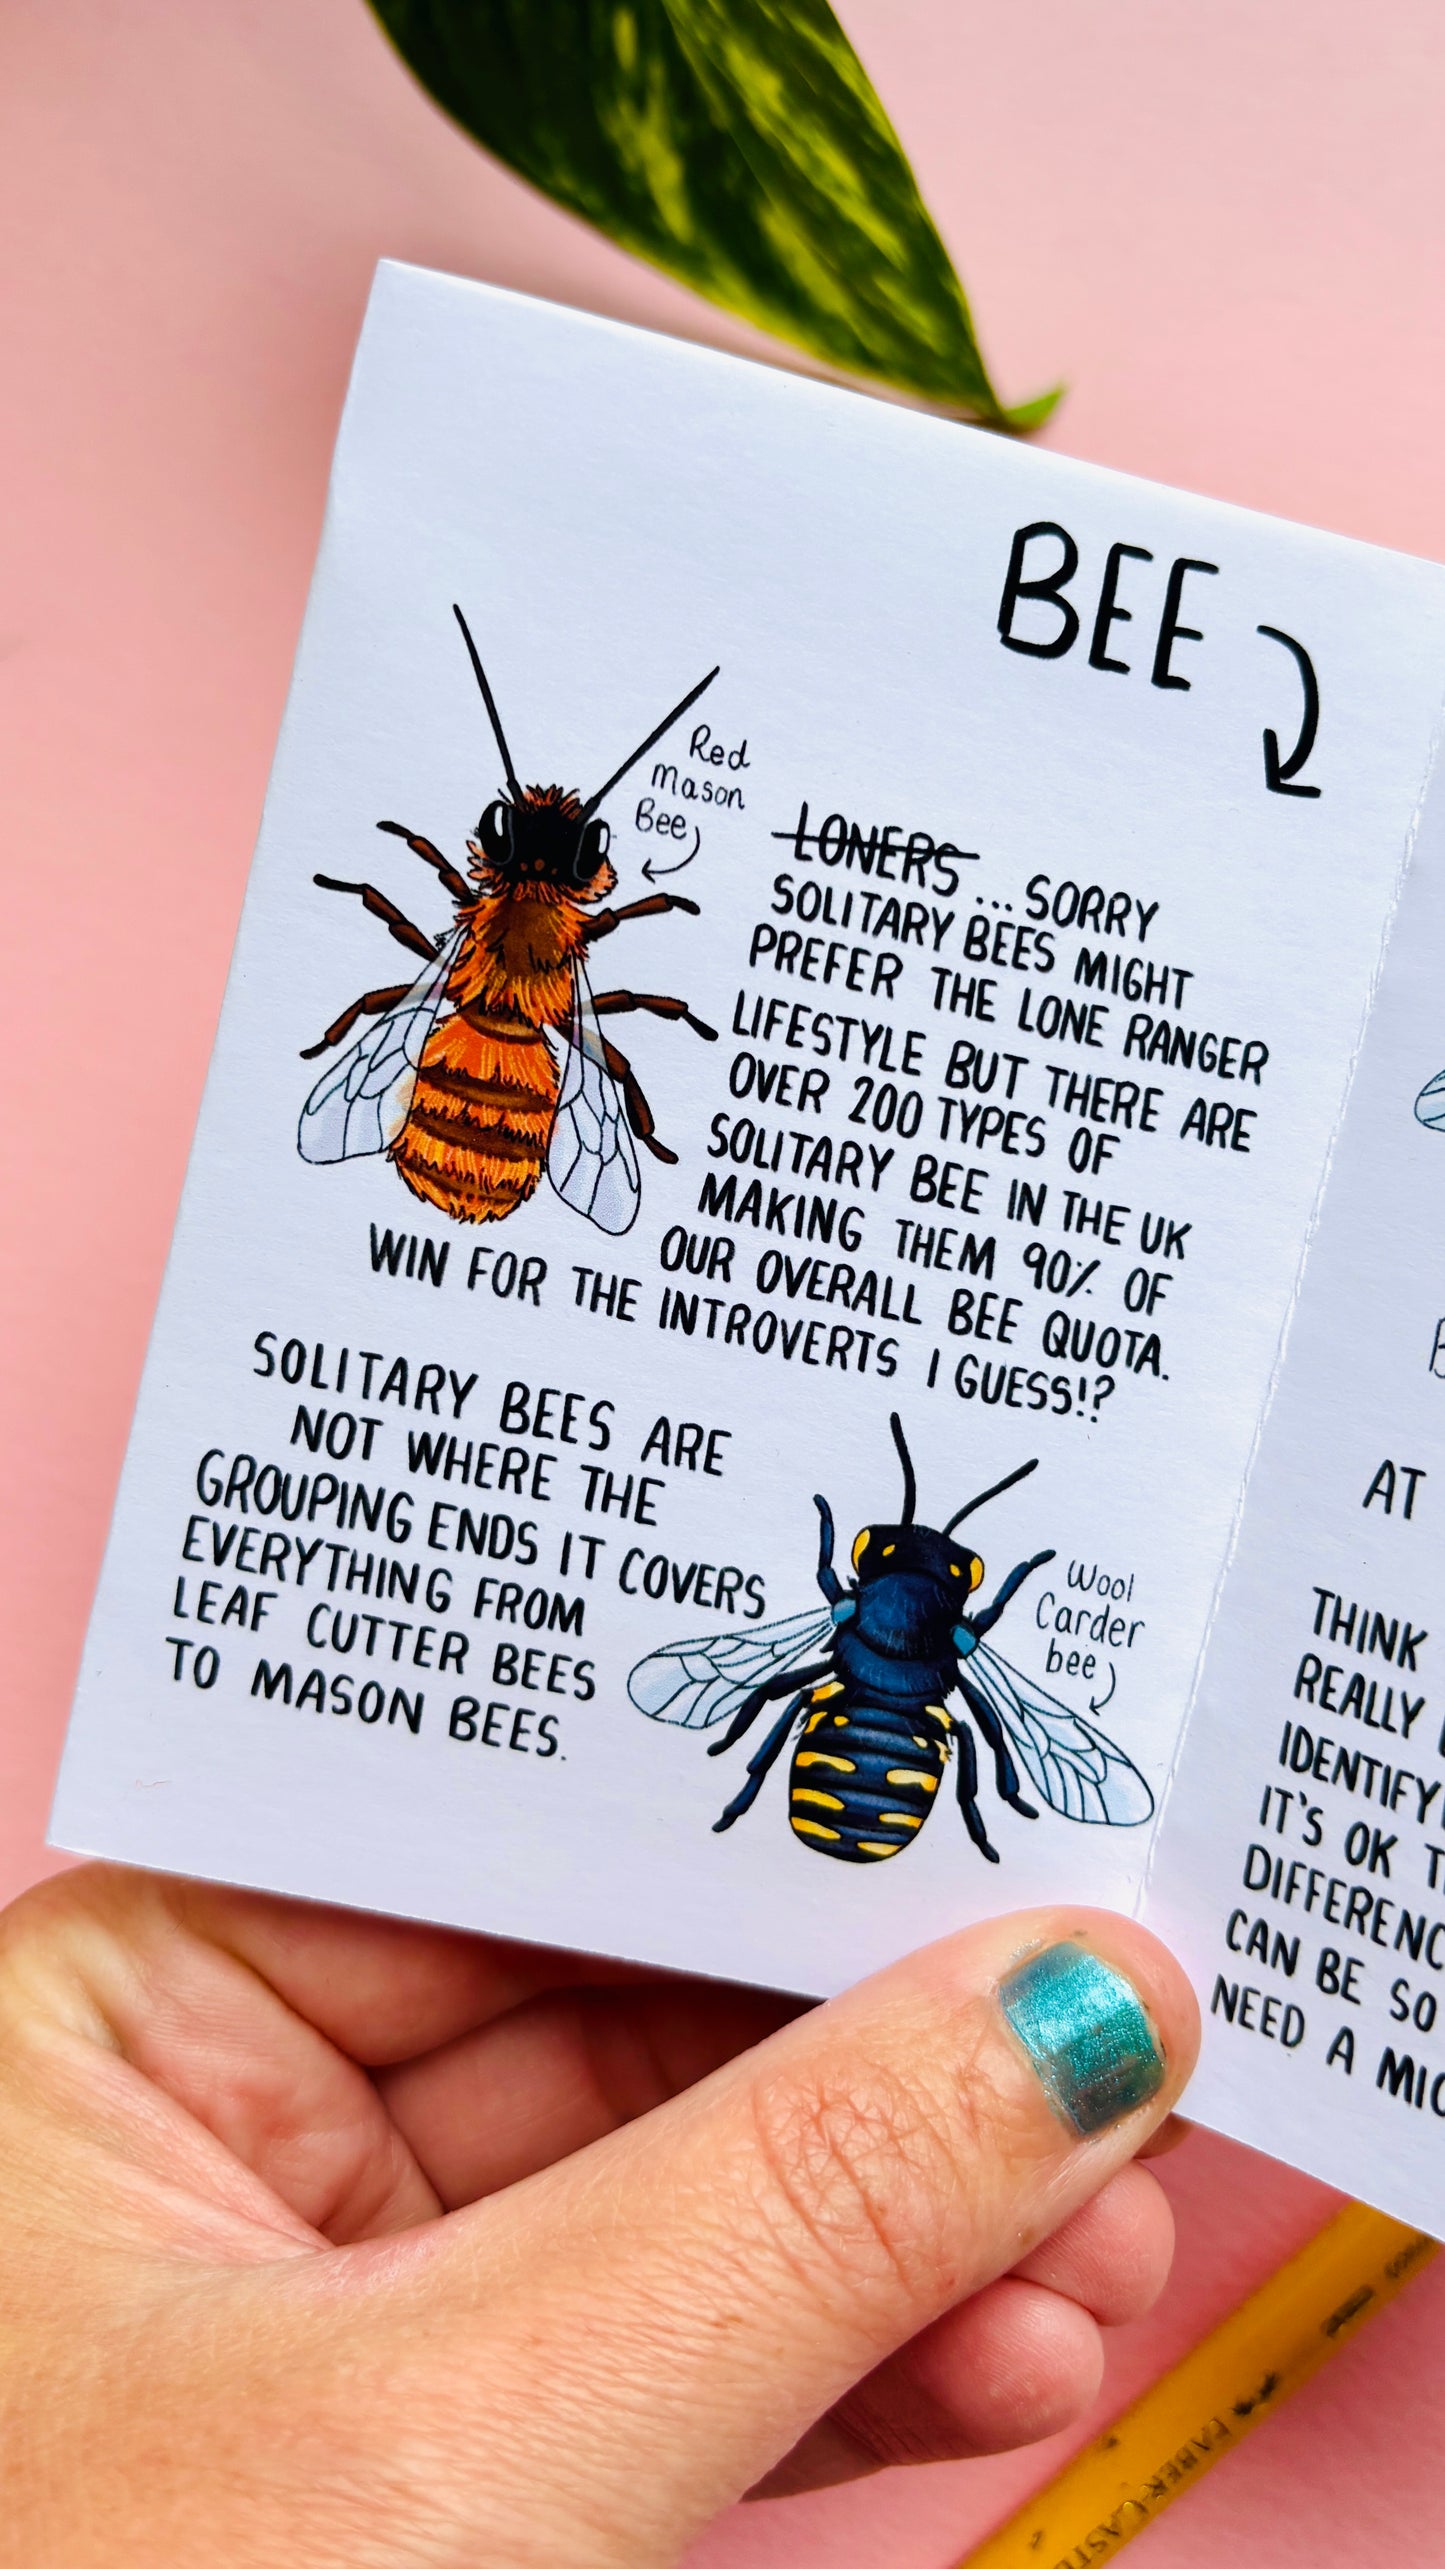 BEE
Red
Mason
Bee
LONERS ... SORRY
SOLITARY BEES MIGHT
PREFER THE LONE RANGER
LIFESTYLE BUT THERE ARE
OVER 200 TYPES OF
SOLITARY BEE IN THE UK
MAKING THEM 90% OF
OUR OVERALL BEE QUOTA.
WIN FOR THE INTROVERTS I GUESS!?
SOLITARY BEES ARE
NOT WHERE THE
GROUPING ENDS IT COVERS
EVERYTHING FROM
LEAF CUTTER BEES
TO MASON BEES.
Wool
Carder
bee
AT
THINK
REALLY
IDENTIFY
IT'S OK
DIFFERENC
CAN BE SO
NEED A MIC
FABER-CASTE